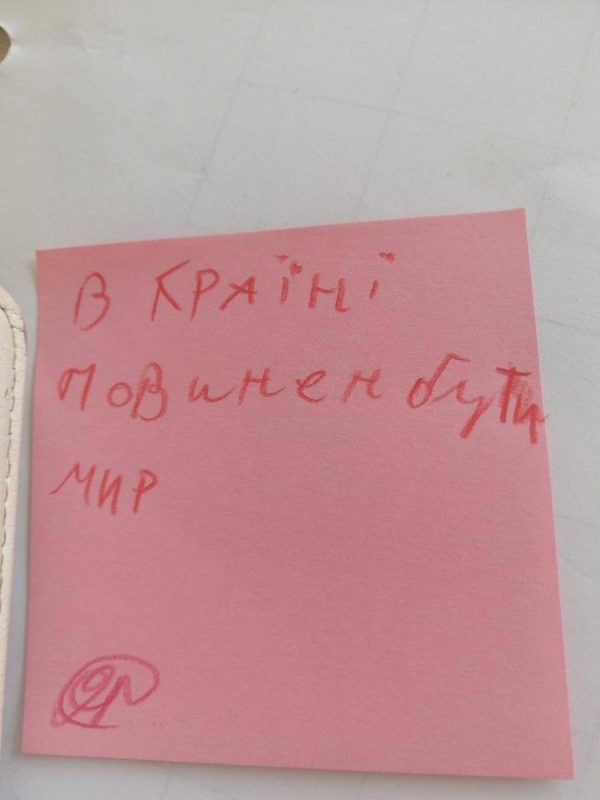 В КРАЇНІ
ПОВИНЕН бути
МИР